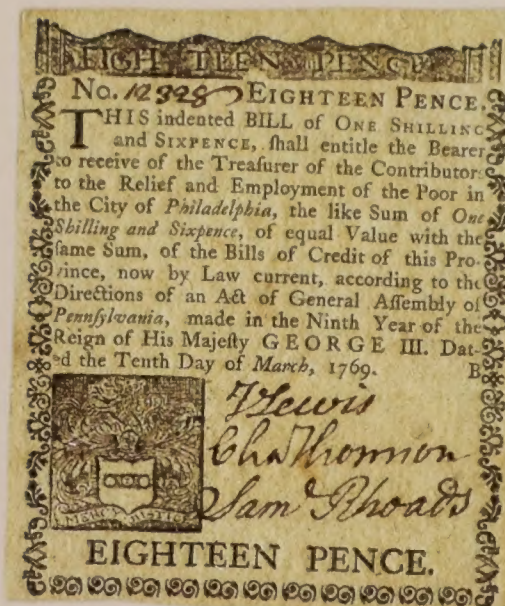 EIGHTEEN PENCE
No. 12328 EIGHTEEN PENCE.
THIS indented BILL of ONE SHILLING
and SIXPENCE, ſhall entitle the Bearer
to receive of the Treaſurer of the Contributors
to the Relief and Employment of the Poor in
the City of Philadelphia, the like Sum of One
Shilling and Sixpence, of equal Value with the
ſame Sum, of the Bills of Credit of this Pro-
vince, now by Law current, according to the
Directions of an Act of General Aſſembly of
Pennſylvania, made in the Ninth Year of the
Reign of His Majeſty GEORGE III. Dat-
ed the Tenth Day of March, 1769. B
Lewis
Cha Thomson
Saml Rhoads
MERCY JUSTICE
EIGHTEEN PENCE.